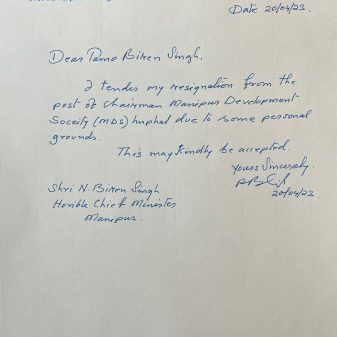 Date 20/04/23.
Dear Tamo Biren Singh,
I tender my resignation from the
post of Chairman Manipur Development
Soceity (MDS) Imphal due to some personal
grounds.
This may kindly be accepted
Yours Sincerely.
20/04/23
Shri N. Biren Singh
Hon'ble Chief Minister
Manipur.